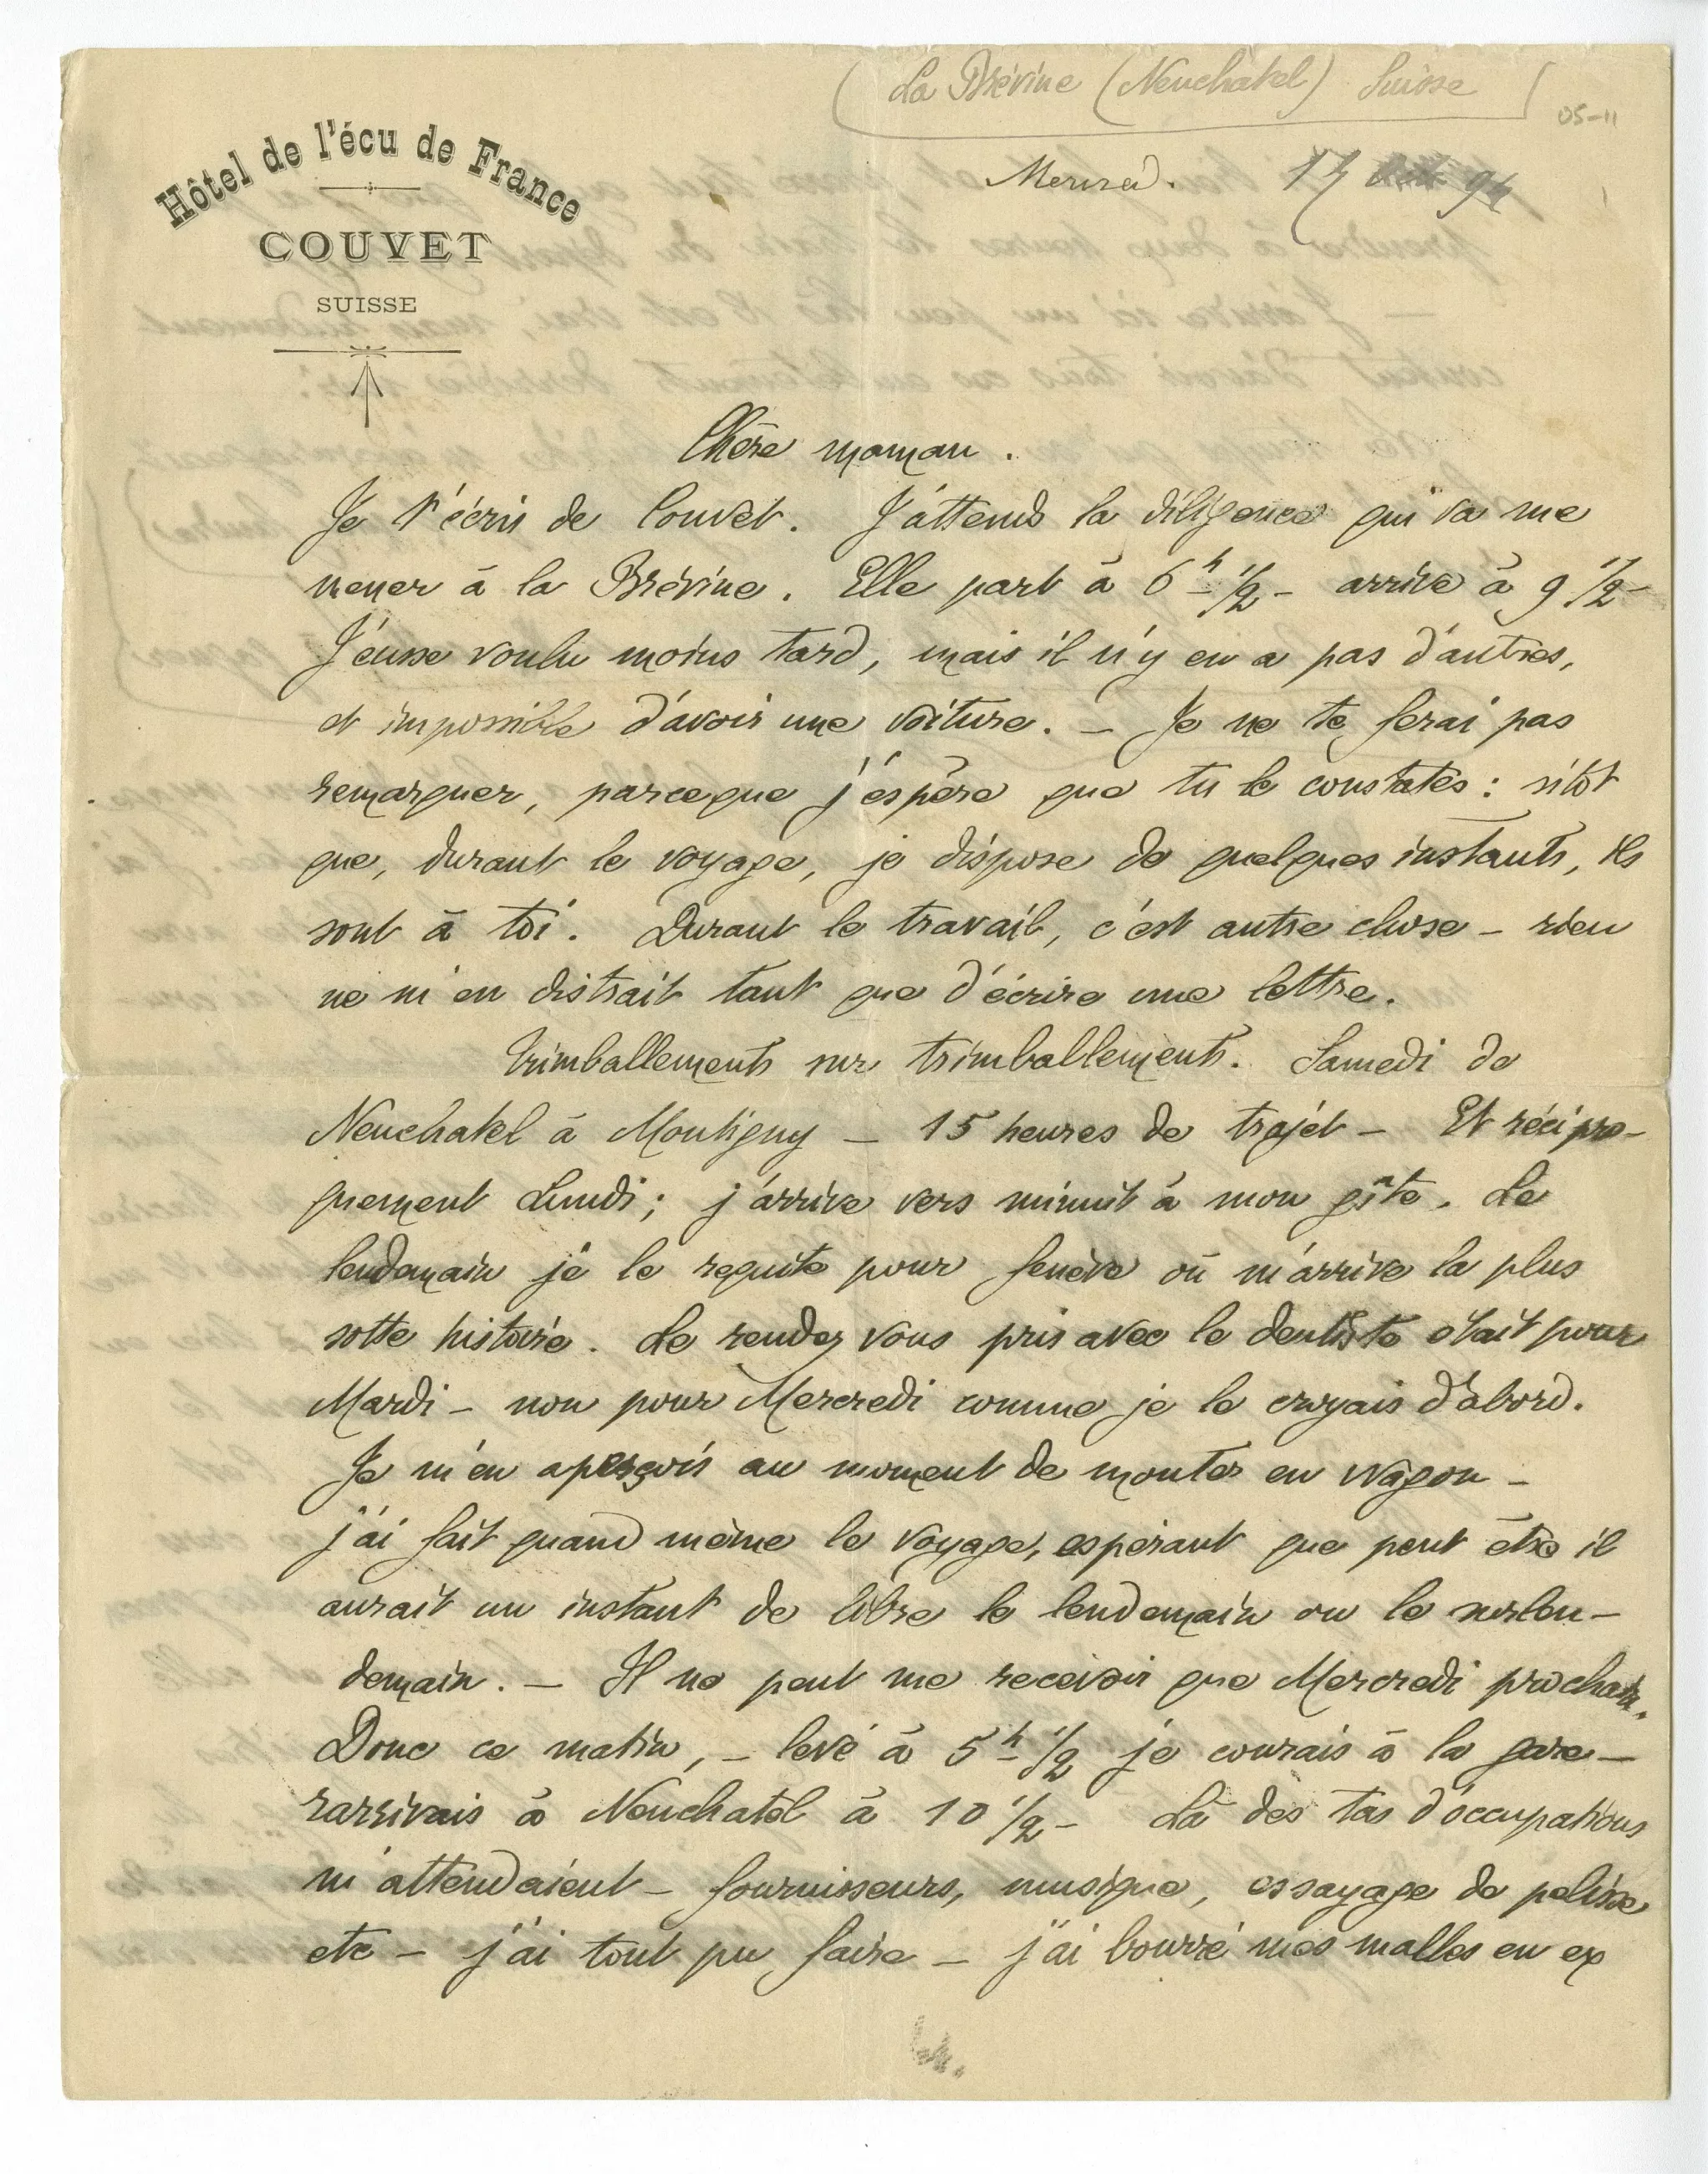 (La Brévine (Neuchatel) Suisse
05-11
Hôtel de l'écu de France
COUVET
SUISSE
Mercred. 17 94
Chère maman.
Je t'écris de Couvet. J'attends la diligence qui va me
mener à la Brévine. Elle part à 6 h 1/2 - arrive à 9 1/2 -
J'eusse voulu moins tard, mais il n'y en a pas d'autres,
et impossible d'avoir une voiture. – Je ne te ferai pas
remarquer, parceque j'éspère que tu le constates : sitôt
que, durant le voyage, je dispose de quelques instants, ils
sont à toi. Durant le travail, c'est autre chose – rien
ne m'en distrait tant que d'écrire une lettre.
Trimballements sur trimballements. Samedi de
Neuchatel à Montigny – 15 heures de trajet – Et récipro-
quement Lundi ; j'arrive vers minuit à mon gîte. Le
lendemain je le requitte pour Genève où m'arrive la plus
sotte histoire. Le rendez vous pris avec le dentiste était pour
Mardi – non pour Mercredi comme je le croyais d'abord.
Je m'en aperçois au moment de monter en wagon –
j'ai fait quand même le voyage, espérant que peut être il
aurait un instant de libre le lendemain ou le surlen-
demain. – Il ne peut me recevoir que Mercredi prochain.
Donc ce matin, – levé à 5 h 1/2 je courais à la gare –
rarrivais à Neuchatel à 10 1/2 – Là des tas d'occupations
m'attendaient – fournisseurs, musique, essayage de pelisse
etc – j'ai tout pu faire – j'ai bourré mes malles en ex